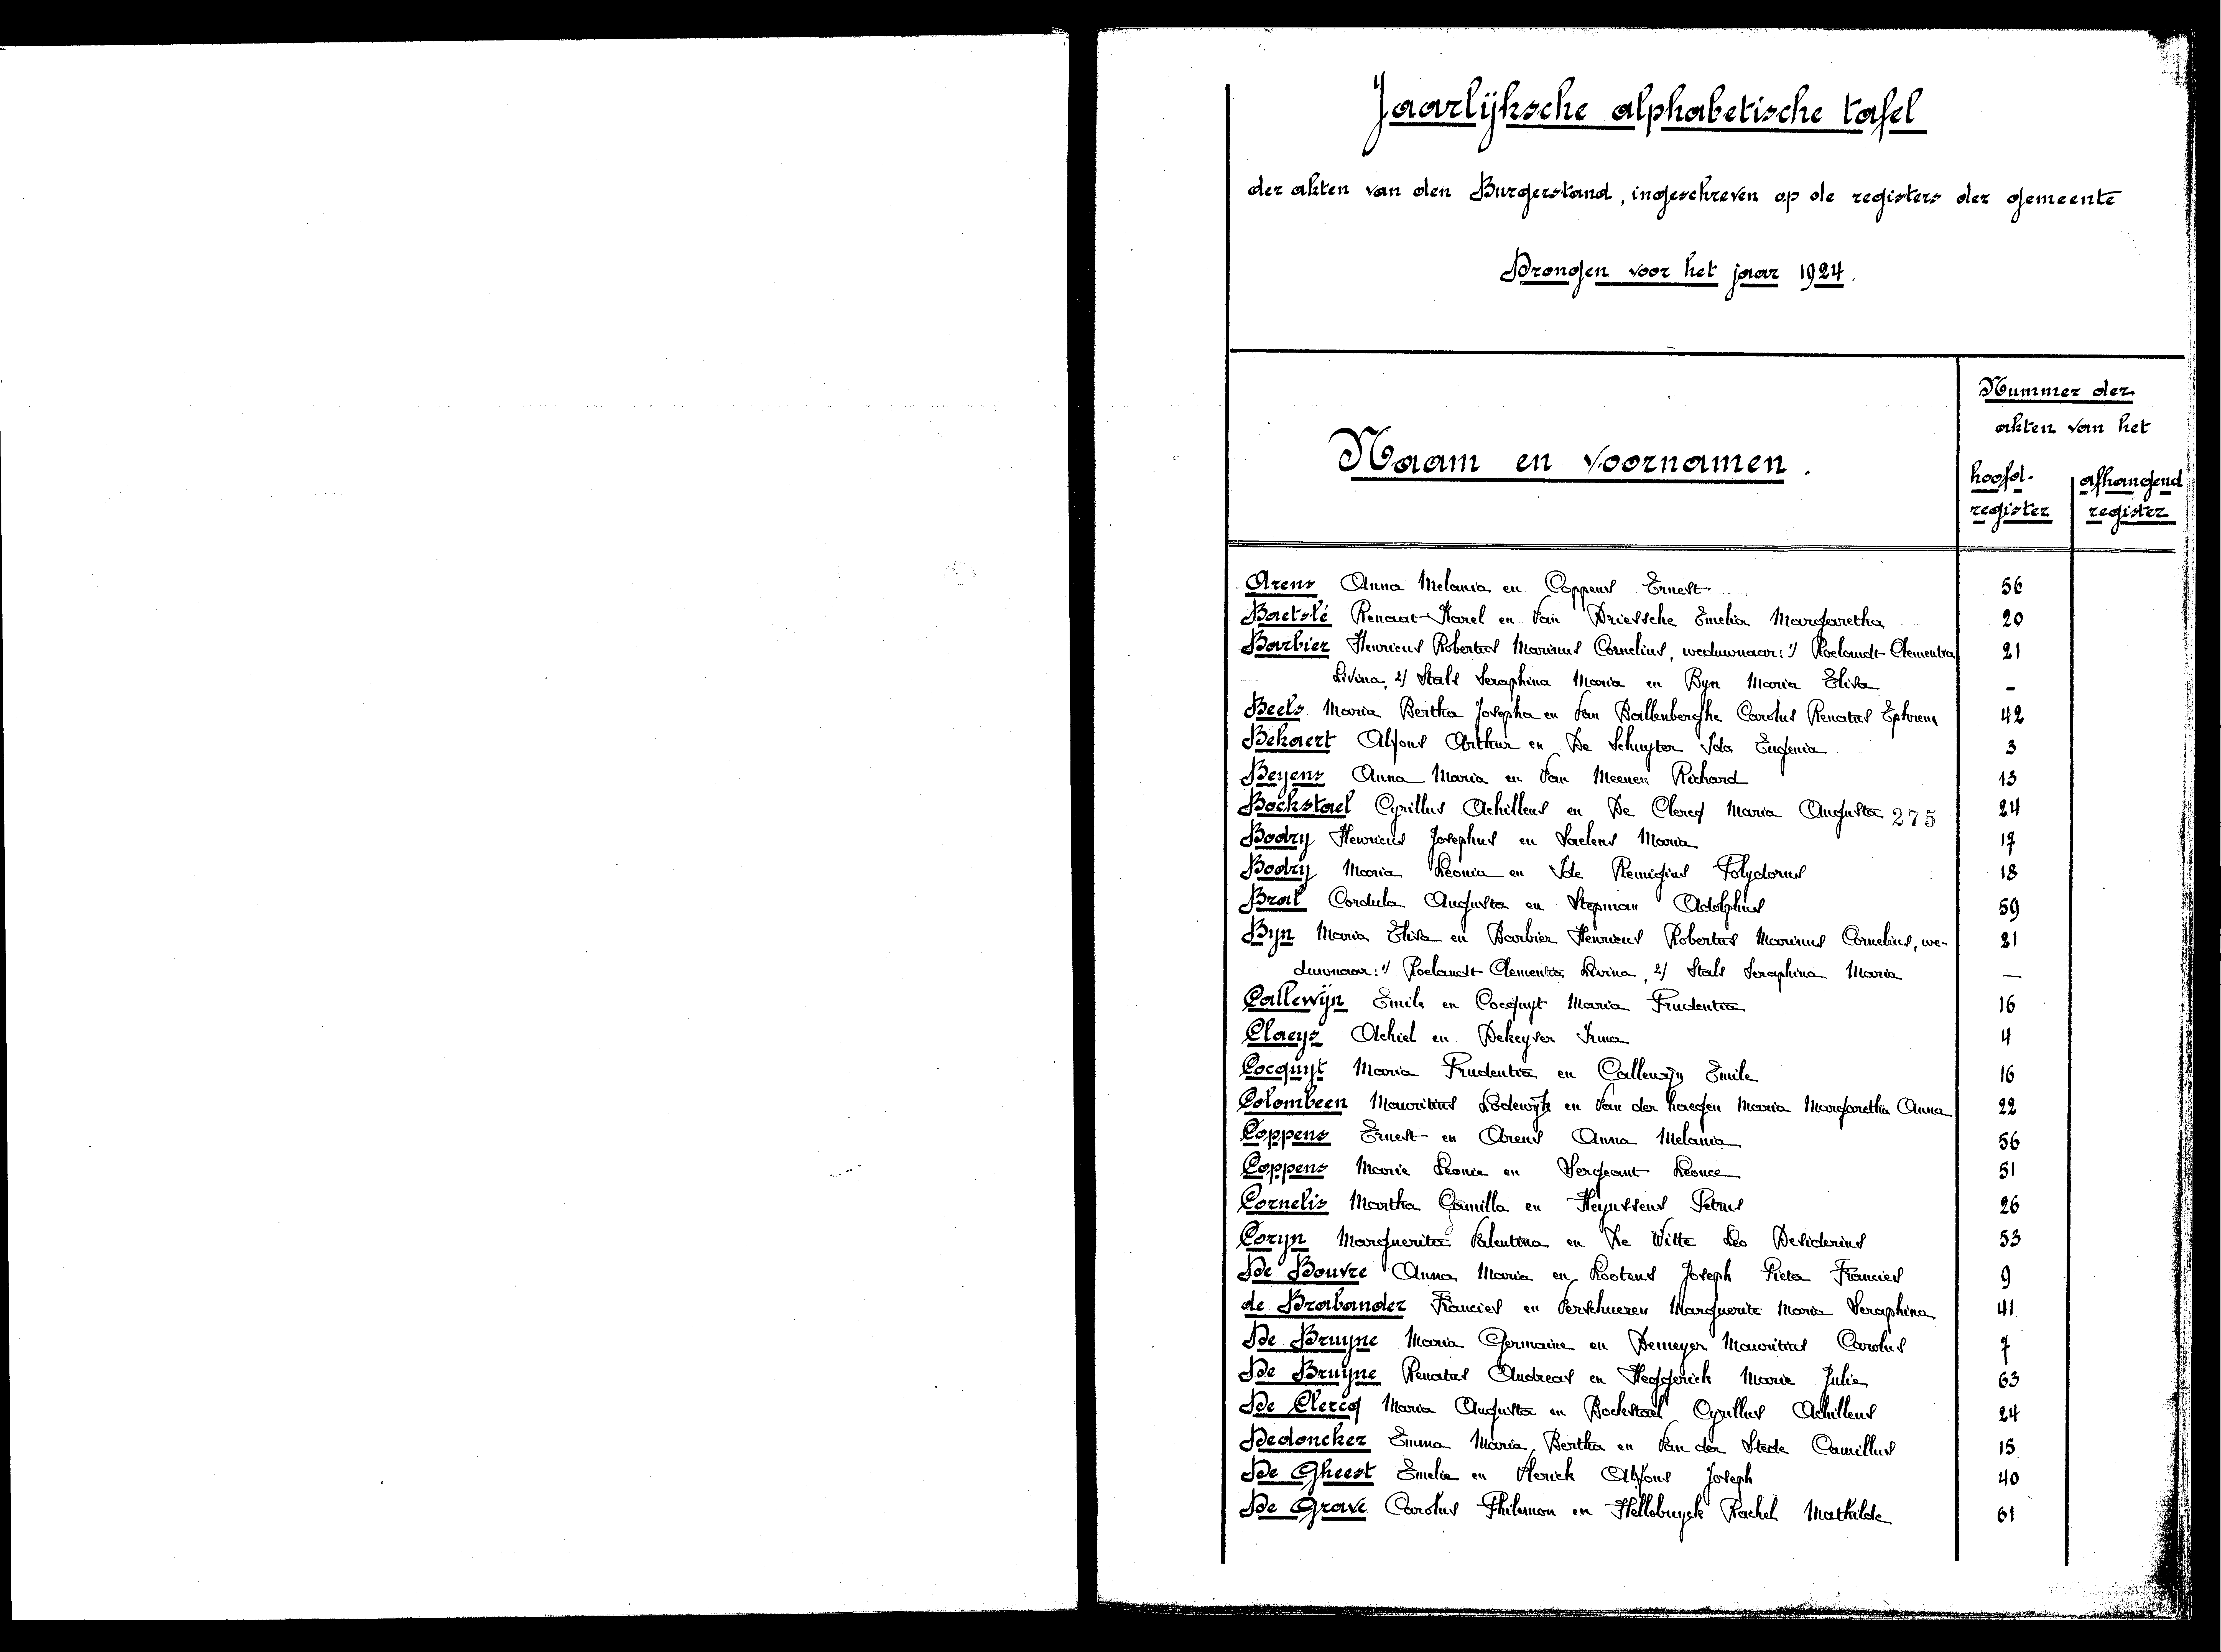 Jaarlijksche alphabetische tafel
der akten van den Burgerstand, ingeschreven op de registers der gemeente
Drongen voor het jaar 1924.
Naam en voornamen.
Nummer der
akten van het
hoofd-
register
afhangend
register
Arens Anna Melania en Coppens Ernest 56
Baetslé Renaat Karel en Van Driessche Emelia Margaretha 20
Barbier Henricus Robertus Marinus Cornelius, weduwnaar: 1/ Roelandt Clementia 21
Livina, 2/ Stals Seraphina Maria en Byn Maria Elisa -
Beels Maria Bertha Josepha en Van Ballenberghe Carolus Renatus Ephrem 42
Bekaert Alfons Arthur en De Schuyter Ida Eugenia 3
Beyens Anna Maria en Van Meenen Richard 13
Bockstael Cyrillus Achilleus en De Clercq Maria Augusta 275 24
Bodry Henricus Josephus en Saelens Maria 17
Bodry Maria Leonia en Ide Remigius Polydorus 18
Bral Cordula Augusta en Stepman Adolphus 59
Byn Maria Elisa en Barbier Henricus Robertus Marinus Cornelius, we- 21
duwnaar: 1/ Roelandt Clementia Livina, 2/ Stals Seraphina Maria —
Callewijn Emile en Cocquyt Maria Prudentia 16
Claeys Achiel en Dekeyser Irma 4
Cocquyt Maria Prudentia en Callewijn Emile 16
Colombeen Mauritius Lodewijk en Van der haegen Maria Margaretha Anna 22
Coppens Ernest en Arens Anna Melania 56
Coppens Marie Leonie en Sergeant Léonce 51
Cornelis Martha Camilla en Heynssens Petrus 26
Coryn Marguerita Valentina en De Witte Leo Desiderius 53
De Bouvre Anna Maria en Lootens Joseph Pieter Francies 9
de Brabander Francies en Verschueren Marguerite Maria Seraphina 41
De Bruyne Maria Germaine en Demeyer Mauritius Carolus 7
De Bruyne Renatus Andreas en Heggerick Marie Julie 63
De Clercq Maria Augusta en Bockstael Cyrillus Achilleus 24
Dedoncker Emma Maria Bertha en Van der Stede Camillus 15
De Gheest Emelie en Sterick Alfons Joseph 40
De Grave Carolus Philemon en Hellebuyck Rachel Mathilde 61